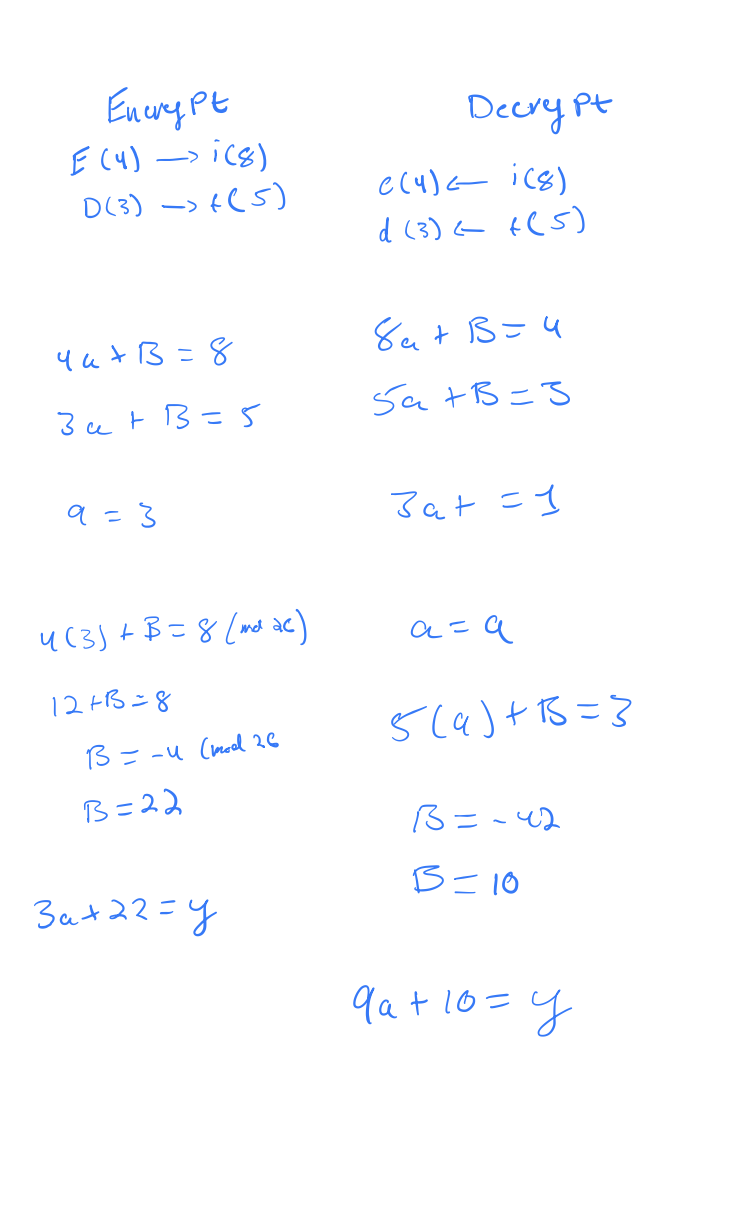 Encrypt
E(4) → i(8)
D(3) → f(5)
4a + B = 8
3a + B = 5
a = 3
4(3) + B = 8 (mod 26)
12 + B = 8
B = -4 (mod 26
B = 22
3a + 22 = y
Decrypt
e(4) ← i(8)
d(3) ← f(5)
8a + B = 4
5a + B = 3
3a + = 1
a = 9
5(9) + B = 3
B = -42
B = 10
9a + 10 = y